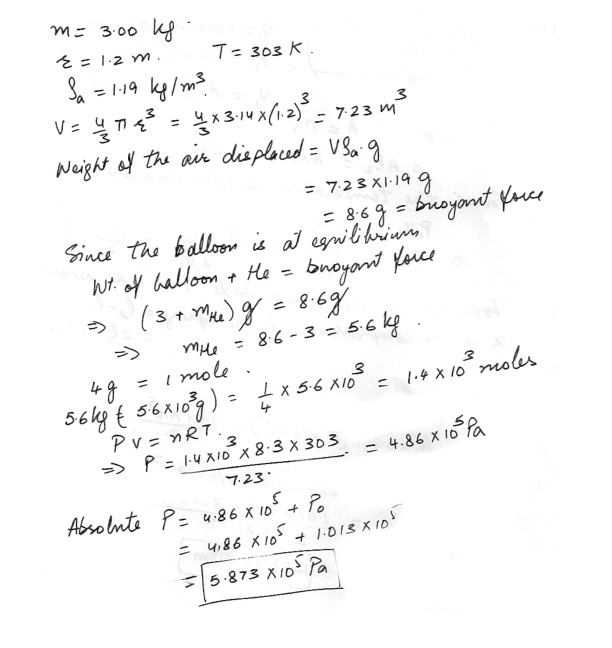 m = 3.00 kg.
r = 1.2 m. T = 303 K.
ρa = 1.19 kg/m³.
V = 4/3 π r³ = 4/3 × 3.14 × (1.2)³ = 7.23 m³
Weight of the air displaced = Vρa g
= 7.23 × 1.19 g
= 8.6 g = buoyant force
Since the balloon is at equilibrium
Wt. of balloon + He = buoyant force
⇒ (3 + mHe) g = 8.6 g
⇒ mHe = 8.6 - 3 = 5.6 kg.
4g = 1 mole.
5.6 kg (5.6 × 10³ g) = 1/4 × 5.6 × 10³ = 1.4 × 10³ moles
PV = nRT.
⇒ P = 1.4 × 10³ × 8.3 × 303 / 7.23 = 4.86 × 10⁵ Pa
Absolute P = 4.86 × 10⁵ + P₀
= 4.86 × 10⁵ + 1.013 × 10⁵
= 5.873 × 10⁵ Pa